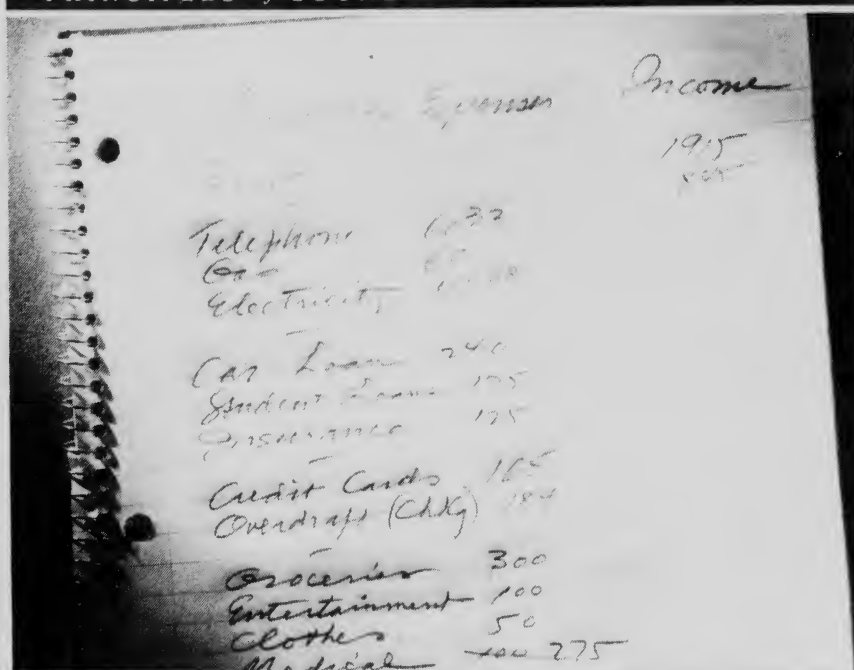 Expenses Income
1915
Telephone
Gas
Electricity
Car Loan 240
Student Loans 175
Insurance 125
Credit Cards 165
Overdraft (ChKg) 184
Groceries 300
Entertainment 100
Clothes 50
Medical 275